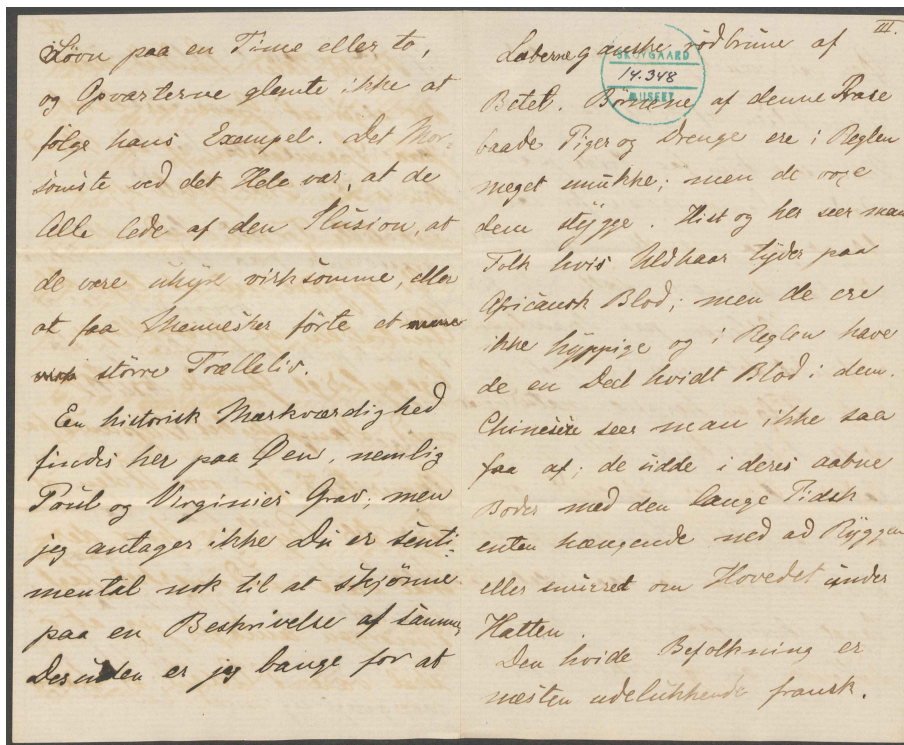 Søvn paa en Time eller to,
og Opvarterne glemte ikke at
følge hans Exempel. Det Mor-
somste ved det Hele var, at de
Alle lede af den Illusion, at
de vare uhyre virksomme, eller
at faa Mennesker förte et
större Trælleliv.
En historisk Mærkværdighed
findes her paa Øen, nemlig
Paul og Virginies Grav; men
jeg antager ikke Du er senti-
mental nok til at skjønne
paa en Beskrivelse af samme
Desuden er jeg bange for at
III.
Læberne ganske rödbrune af
SKOVGAARD
14.348
MUSEET
Betel. Børnene af denne Race
baade Piger og Drenge ere i Reglen
meget smukke; men de voxe
dem stygge. Hist og her seer man
Folk hvis Uldhaar tyder paa
Africansk Blod; men de ere
ikke hyppige og i Reglen have
de en Deel hvidt Blod i dem.
Chinesere seer man ikke saa
faa af; de sidde i deres aabne
Boder med den lange Pidsk
enten hængende ned ad Ryggen
eller snurret om Hovedet under
Hatten.
Den hvide Befolkning er
næsten udelukkende fransk.